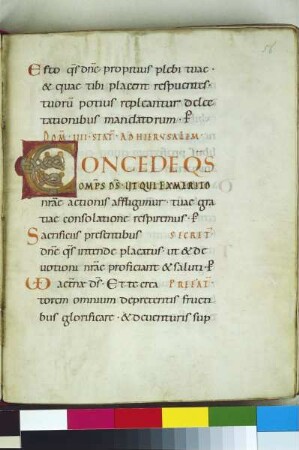 58
Esto qs dne propitius plebi tuae ·
& quae tibi placent respuentes ·
tuorũ potius repleantur delec
tationibus mandatorum · P
DOM · IIII · STAT · AD HIERUSALEM
CONCEDE QS
OMPS DS · UT QUI EX MERITO
nrae actionis affligimur · tuae gra
tiae consolatione respiremus · P
Sacrificiis presentibus SECRET
dne qs intende placatus · ut & de
uotioni nrae proficiant & saluti · P
UD aeterne ds · Et te crea PREFAT
torem omnium de preteritis fructi
bus glorificare · & de uenturis sup